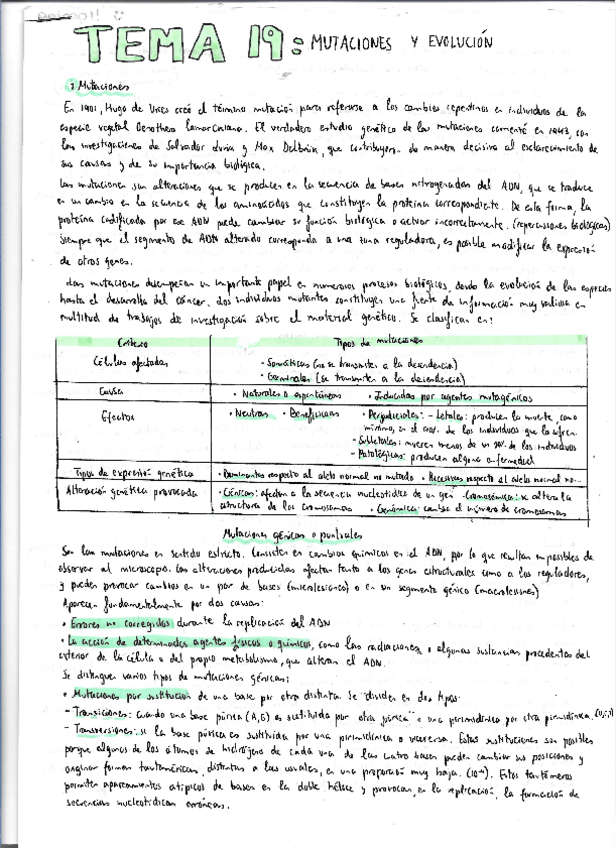 TEMA 19: MUTACIONES Y EVOLUCIÓN
1 Mutaciones
En 1901, Hugo de Vries creó el término mutación para referirse a los cambios repentinos en individuos de la
especie vegetal Oenothera lamarckiana. El verdadero estudio genético de las mutaciones comenzó en 1943, con
las investigaciones de Salvador Luria y Max Delbrük, que contribuyeron de manera decisiva al esclarecimiento de
sus causas y de su importancia biológica.
Las mutaciones son alteraciones que se producen en la secuencia de bases nitrogenadas del ADN, que se traduce
en un cambio en la secuencia de los aminoácidos que constituyen la proteína correspondiente. De esta forma, la
proteína codificada por ese ADN puede cambiar su función biológica o actuar incorrectamente. (repercusiones biológicas)
Siempre que el segmento de ADN alterado corresponda a una zona reguladora, es posible modificar la expresión
de otros genes.
Las mutaciones desempeñan un importante papel en numerosos procesos biológicos, desde la evolución de las especies
hasta el desarrollo del cáncer. Los individuos mutantes constituyen una fuente de información muy valiosa en
multitud de trabajos de investigación sobre el material genético. Se clasifican en:
Criterio Tipos de mutaciones
Células afectadas · Somáticas (no se transmiten a la descendencia)
· Germinales (se transmiten a la descendencia)
Causa · Naturales o espontáneas · Inducidas por agentes mutagénicos
Efectos · Neutras · Beneficiosas · Perjudiciales: - Letales: producen la muerte, como
mínimo, en el 90% de los individuos que la sufren.
- Subletales: mueren menos de un 90% de los individuos
- Patológicas: producen alguna enfermedad
Tipos de expresión genética · Dominantes respecto al alelo normal no mutado · Recesivas respecto al alelo normal no...
Alteración genética provocada · Génicas: afectan a la secuencia nucleotídica de un gen · Cromosómica: se altera la
estructura de los cromosomas · Genómica: cambia el número de cromosomas
Mutaciones génicas o puntuales
Son las mutaciones en sentido estricto. Consisten en cambios químicos en el ADN, por lo que resultan imposibles de
observar al microscopio. Las alteraciones producidas afectan tanto a los genes estructurales como a los reguladores,
y pueden provocar cambios en un par de bases (microlesiones) o en un segmento génico (macrolesiones)
Aparecen fundamentalmente por dos causas:
· Errores no corregidos durante la replicación del ADN
· La acción de determinados agentes físicos o químicos, como las radiaciones o algunas sustancias procedentes del
exterior de la célula o del propio metabolismo, que alteran el ADN.
Se distinguen varios tipos de mutaciones génicas:
· Mutaciones por sustitución de una base por otra distinta. Se dividen en dos tipos:
- Transiciones: cuando una base púrica (A,G) es sustituida por otra púrica o una pirimidínica por otra pirimidínica.
- Transversiones: si la base púrica es sustituida por una pirimidínica o viceversa. Estas sustituciones son posibles
porque algunos de los átomos de hidrógeno de cada una de las cuatro bases pueden cambiar sus posiciones y
originar formas tautoméricas, distintas a las usuales, en una proporción muy baja. Estos tautómeros
permiten apareamientos atípicos de bases en la doble hélice y provocan, en la replicación, la formación de
secuencias nucleotídicas erróneas.